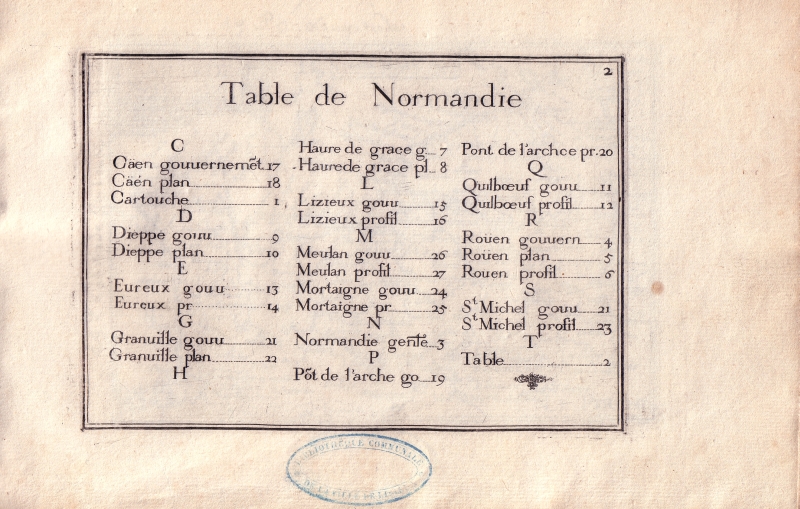 2
Table de Normandie
C
Cäen gouuernemẽt 17
Cäén plan 18
Cartouche 1
D
Dieppe gouu 9
Dieppe plan 10
E
Eureux gouu 13
Eureux pr 14
G
Granuille gouu 21
Granuille plan 22
H
Haure de grace g 7
Haurede grace pl 8
L
Lizieux gouu 15
Lizieux profil 16
M
Meulan gouu 26
Meulan profil 27
Mortaigne gouu 24
Mortaigne pr 25
N
Normandie genle 3
P
Põt de l'arche go 19
Pont de l'archce pr. 20
Q
Quilbœuf gouu 11
Quilbœuf profil 12
R
Roüen gouuern 4
Roüen plan 5
Rouen profil 6
S
St Michel gouu 21
St Michel profil 23
T
Table 2
BIBLIOTHÈQUE COMMUNALE